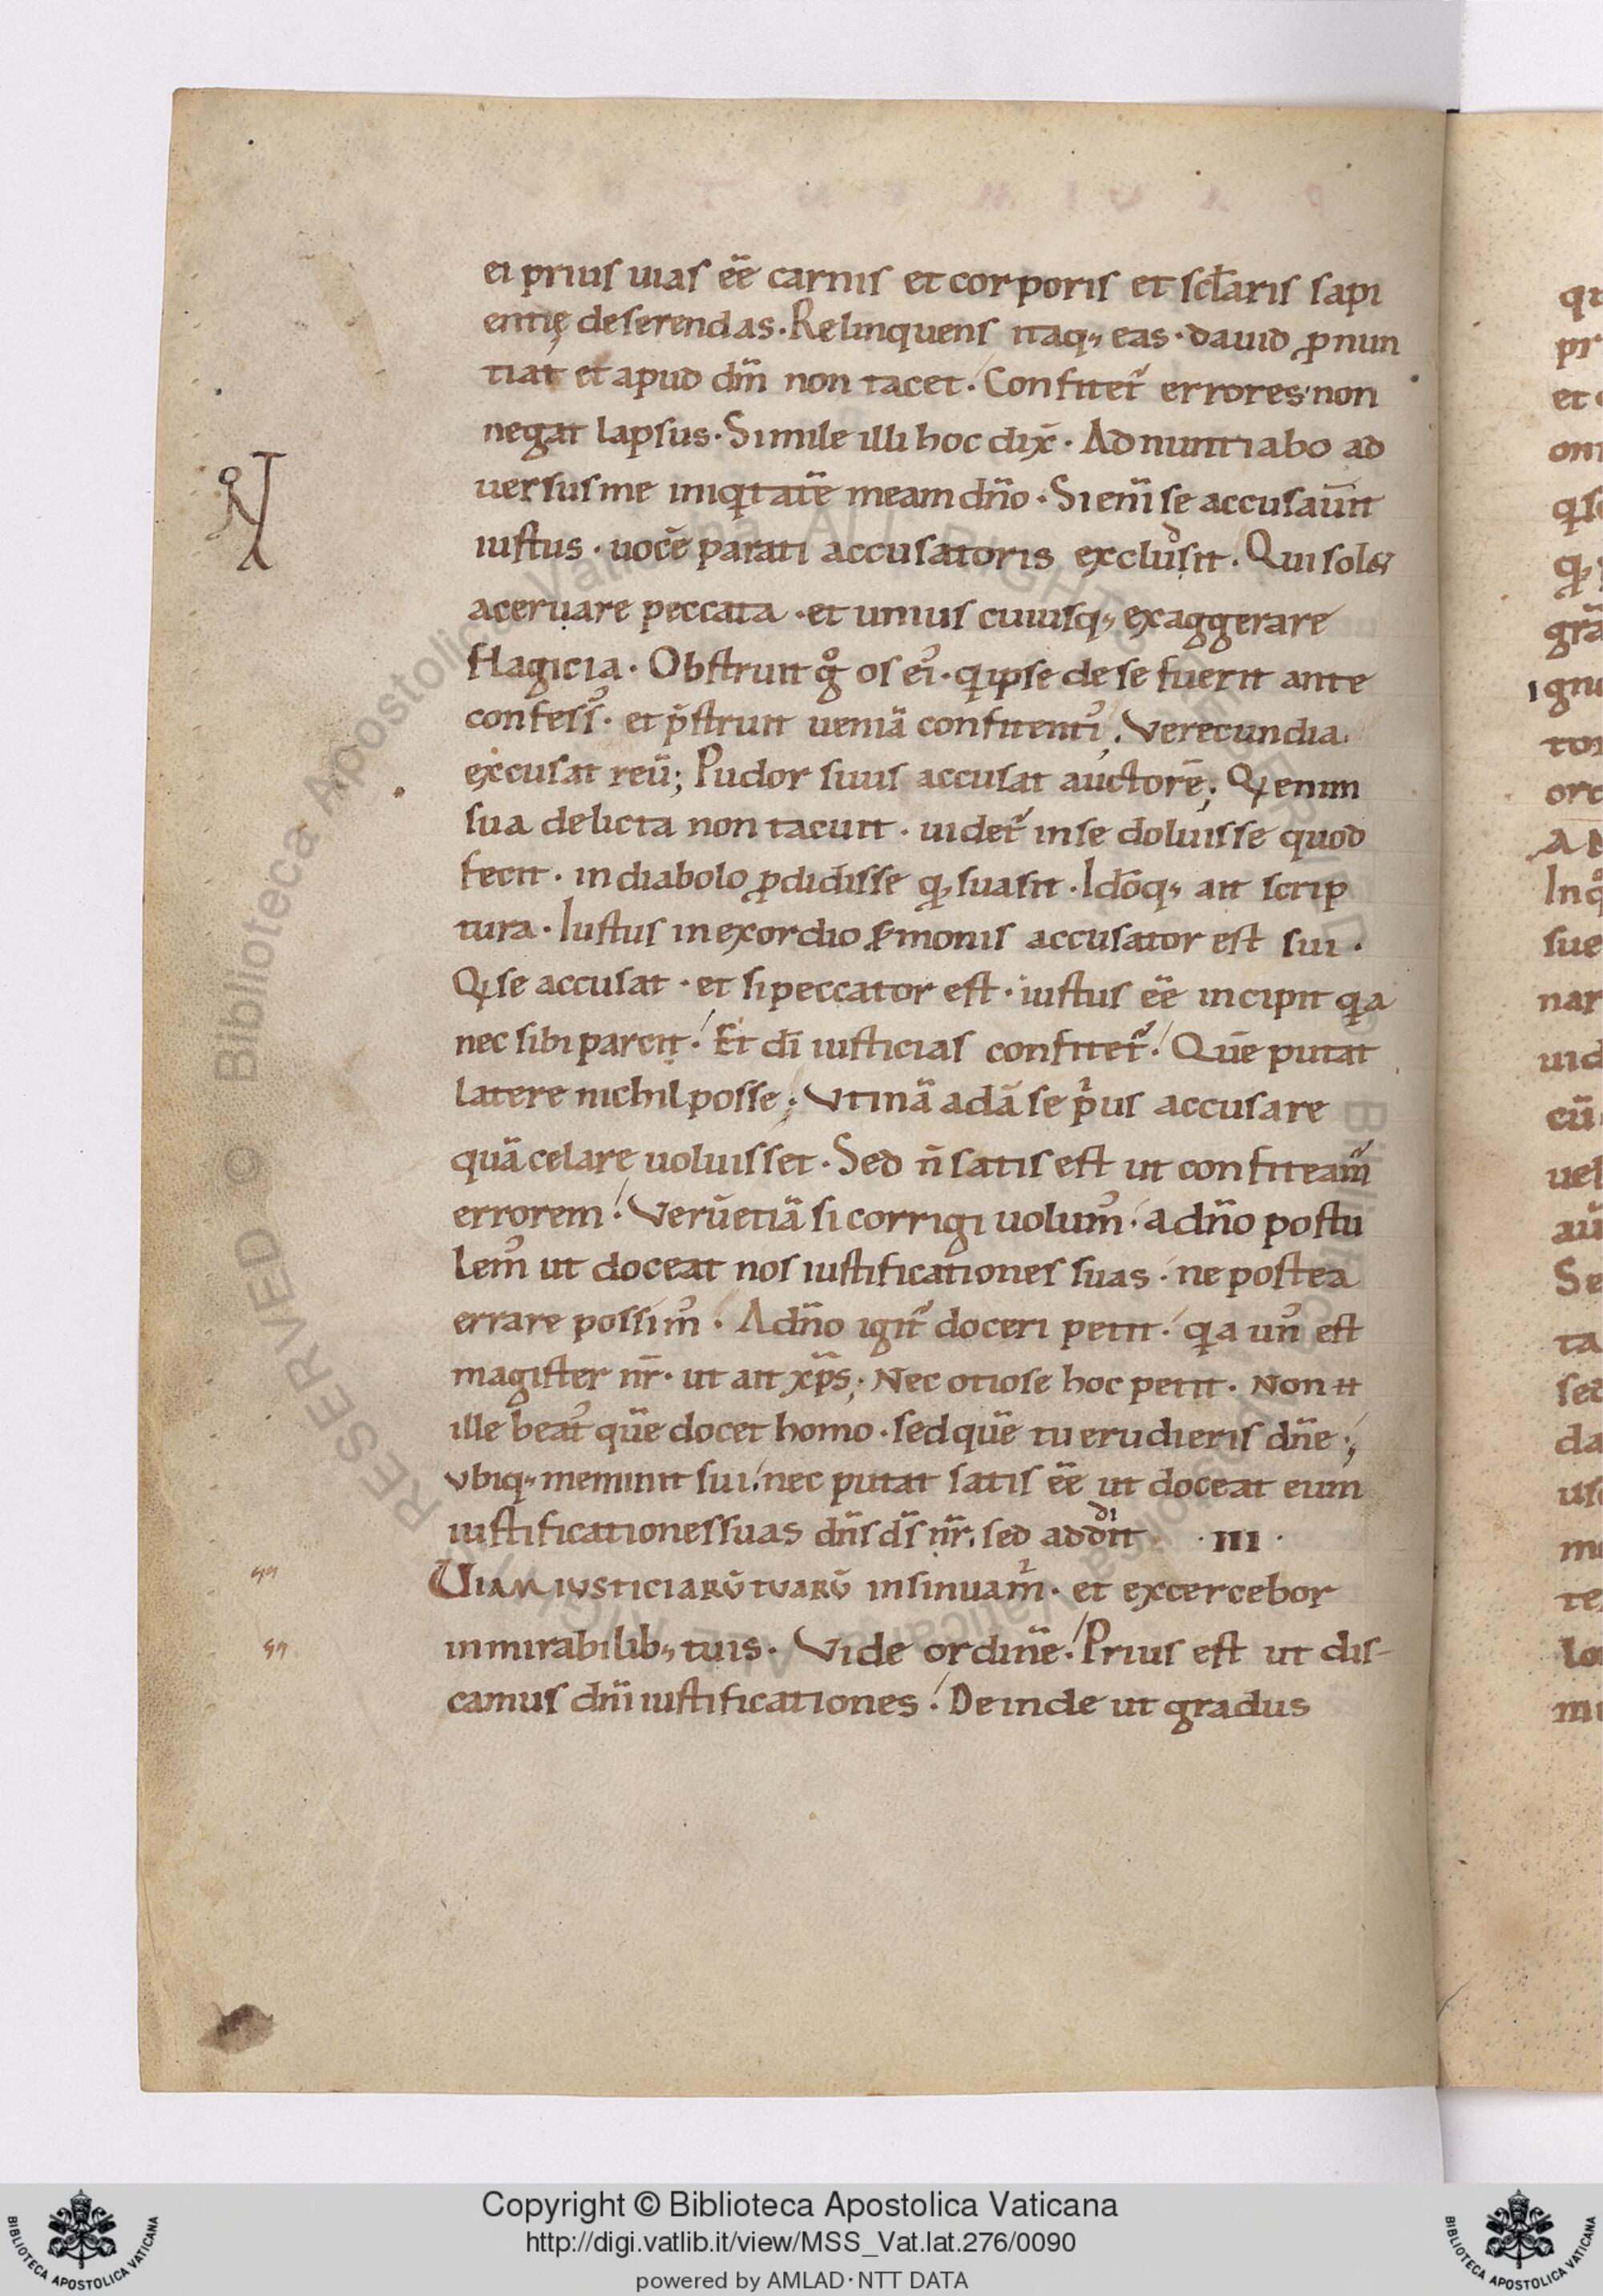 ei prius uias eē carnis et corporis et scl̄aris sapi
entię deserendas. Relinquens itaq; eas. dauid ꝓnun
tiat et apud dm̄ non tacet. Confitet᷑ errores non
negat lapsus. Simile illi hoc dix̄. Adnuntiabo ad
uersus me iniqͥtatē meam dn̄o. Si eni se accusau̅it
iustus. uocē parati accusatoris excludsit. Qui sol&
aceruare peccata. et unius cuiusq; exaggerare
flagicia. Obstruit gͦ os eiꝰ. qͥ ipse de se fuerit ante
confessꝰ. et p̄struit ueniā confitentiꝰ. Verecundia
excusat reū; Pudor suus accusat auctorē; Qͥ enim
sua delicta non tacuit. uidet᷑ in se doluisse quod
fecit. in diabolo ꝓdidisse qͩ suasit. Idōq; ait scrip
tura. Iustus in exordio s̄monis accusator est sui.
Qͥ se accusat. et si peccator est. iustus eē incipit qͥa
nec sibi parcit. Et dī iusticias confitet᷑. Quē putat
latere nichil posse; Vtinā adā se pͥus accusare
quā celare uoluisset. Sed n̄ satis est ut confiteam᷑
errorem. Verū etiā si corrigi uolumꝰ. a dn̄o postu
lemꝰ ut doceat nos iustificationes suas. ne postea
errare possimꝰ. A dn̄o igit᷑ doceri petit. qͥa unꝰ est
magister nr̄. ut ait xp̄s; Nec otiose hoc petit. Non it
ille beatꝰ quē docet homo. sed quē tu erudieris dn̄e;
Vbiq; meminit sui. nec putat satis eē ut doceat eum
iustificationes suas dn̄s ds̄ nr̄. sed addidit . III .
VIAM IVSTICIARŪ TVARŪ insinua mͥ. et excercebor
in mirabilib; tuis. Vide ordinē. Prius est ut dis-
camus dn̄i iustificationes. Deinde ut gradus
RESERVED © Biblioteca Apostolica Vaticana ALL RIGHTS
Copyright © Biblioteca Apostolica Vaticana
http://digi.vatlib.it/view/MSS_Vat.lat.276/0090
powered by AMLAD·NTT DATA
BIBLIOTECA APOSTOLICA VATICANA
BIBLIOTECA APOSTOLICA VATICANA